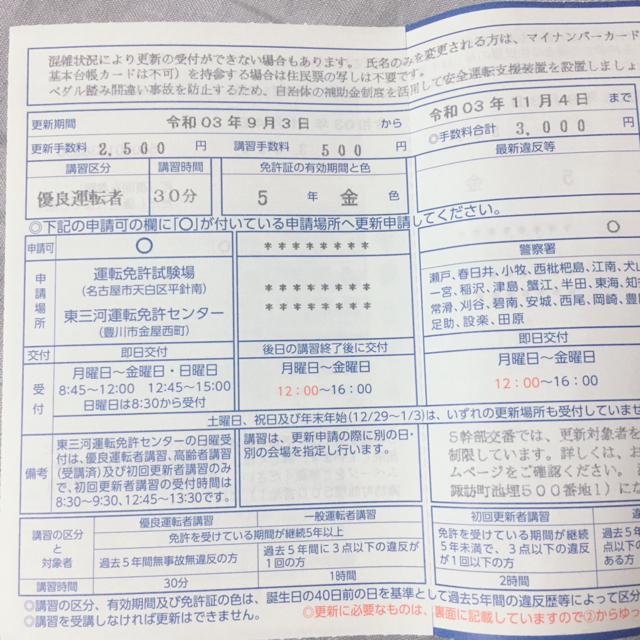 混雑状況により更新の受付ができない場合もあります。 氏名のみを変更される方は、マイナンバーカード
基本台帳カードは不可)を持参する場合は住民票の写しは不要です。
ペダル踏み間違い事故を防止するため、自治体の補助金制度を活用して安全運転支援装置を設置しましょ
更新期間 令和03年9月3日 から 令和03年11月4日 まで
更新手数料 2,500 円 講習手数料 500 円 ◎手数料合計 3,000 円
講習区分 講習時間 免許証の有効期間と色 最新違反等
優良運転者 30分 5 年 金 色
◎下記の申請可の欄に「○」が付いている申請場所へ更新申請してください。
申請可 ○ ******** ○
申請場所
運転免許試験場
(名古屋市天白区平針南)
東三河運転免許センター
(豊川市金屋西町)
********
********
警察署
瀬戸、春日井、小牧、西枇杷島、江南、犬山
一宮、稲沢、津島、蟹江、半田、東海、知
常滑、刈谷、碧南、安城、西尾、岡崎、豊
足助、設楽、田原
交付 即日交付 後日の講習終了後に交付 即日交付
受付
月曜日~金曜日・日曜日
8:45~12:00 12:45~15:00
日曜日は8:30から受付
月曜日~金曜日
12:00~16:00
月曜日~金曜日
12:00~16:00
土曜日、祝日及び年末年始(12/29~1/3)は、いずれの更新場所も受付していませ
備考
東三河運転免許センターの日曜受
付は、優良運転者講習、高齢者講習
(受講済)及び初回更新者講習のみ
で、初回更新者講習の受付時間は
8:30~9:30、12:45~13:30です。
講習は、更新申請の際に別の日・
別の会場を指定し行います。
5幹部交番では、更新対象者を
制限しています。詳しくは、お
ムページをご確認ください。
諏訪町池埋500番地1)にな
講習の区分と対象者
優良運転者講習 一般運転者講習 初回更新者講習
免許を受けている期間が継続5年以上
過去5年間無事故無違反の方
過去5年間に3点以下の違反が
1回の方
免許を受けている期間が継続
5年未満で、3点以下の違反が
1回以下の方
過去
点以
ある方
講習時間 30分 1時間 2時間
◎講習の区分、有効期間及び免許証の色は、誕生日の40日前の日を基準として過去5年間の違反歴等によって区分
◎講習を受講しなければ更新はできません。
◎更新に必要なものは、裏面に記載していますので②からゆっ